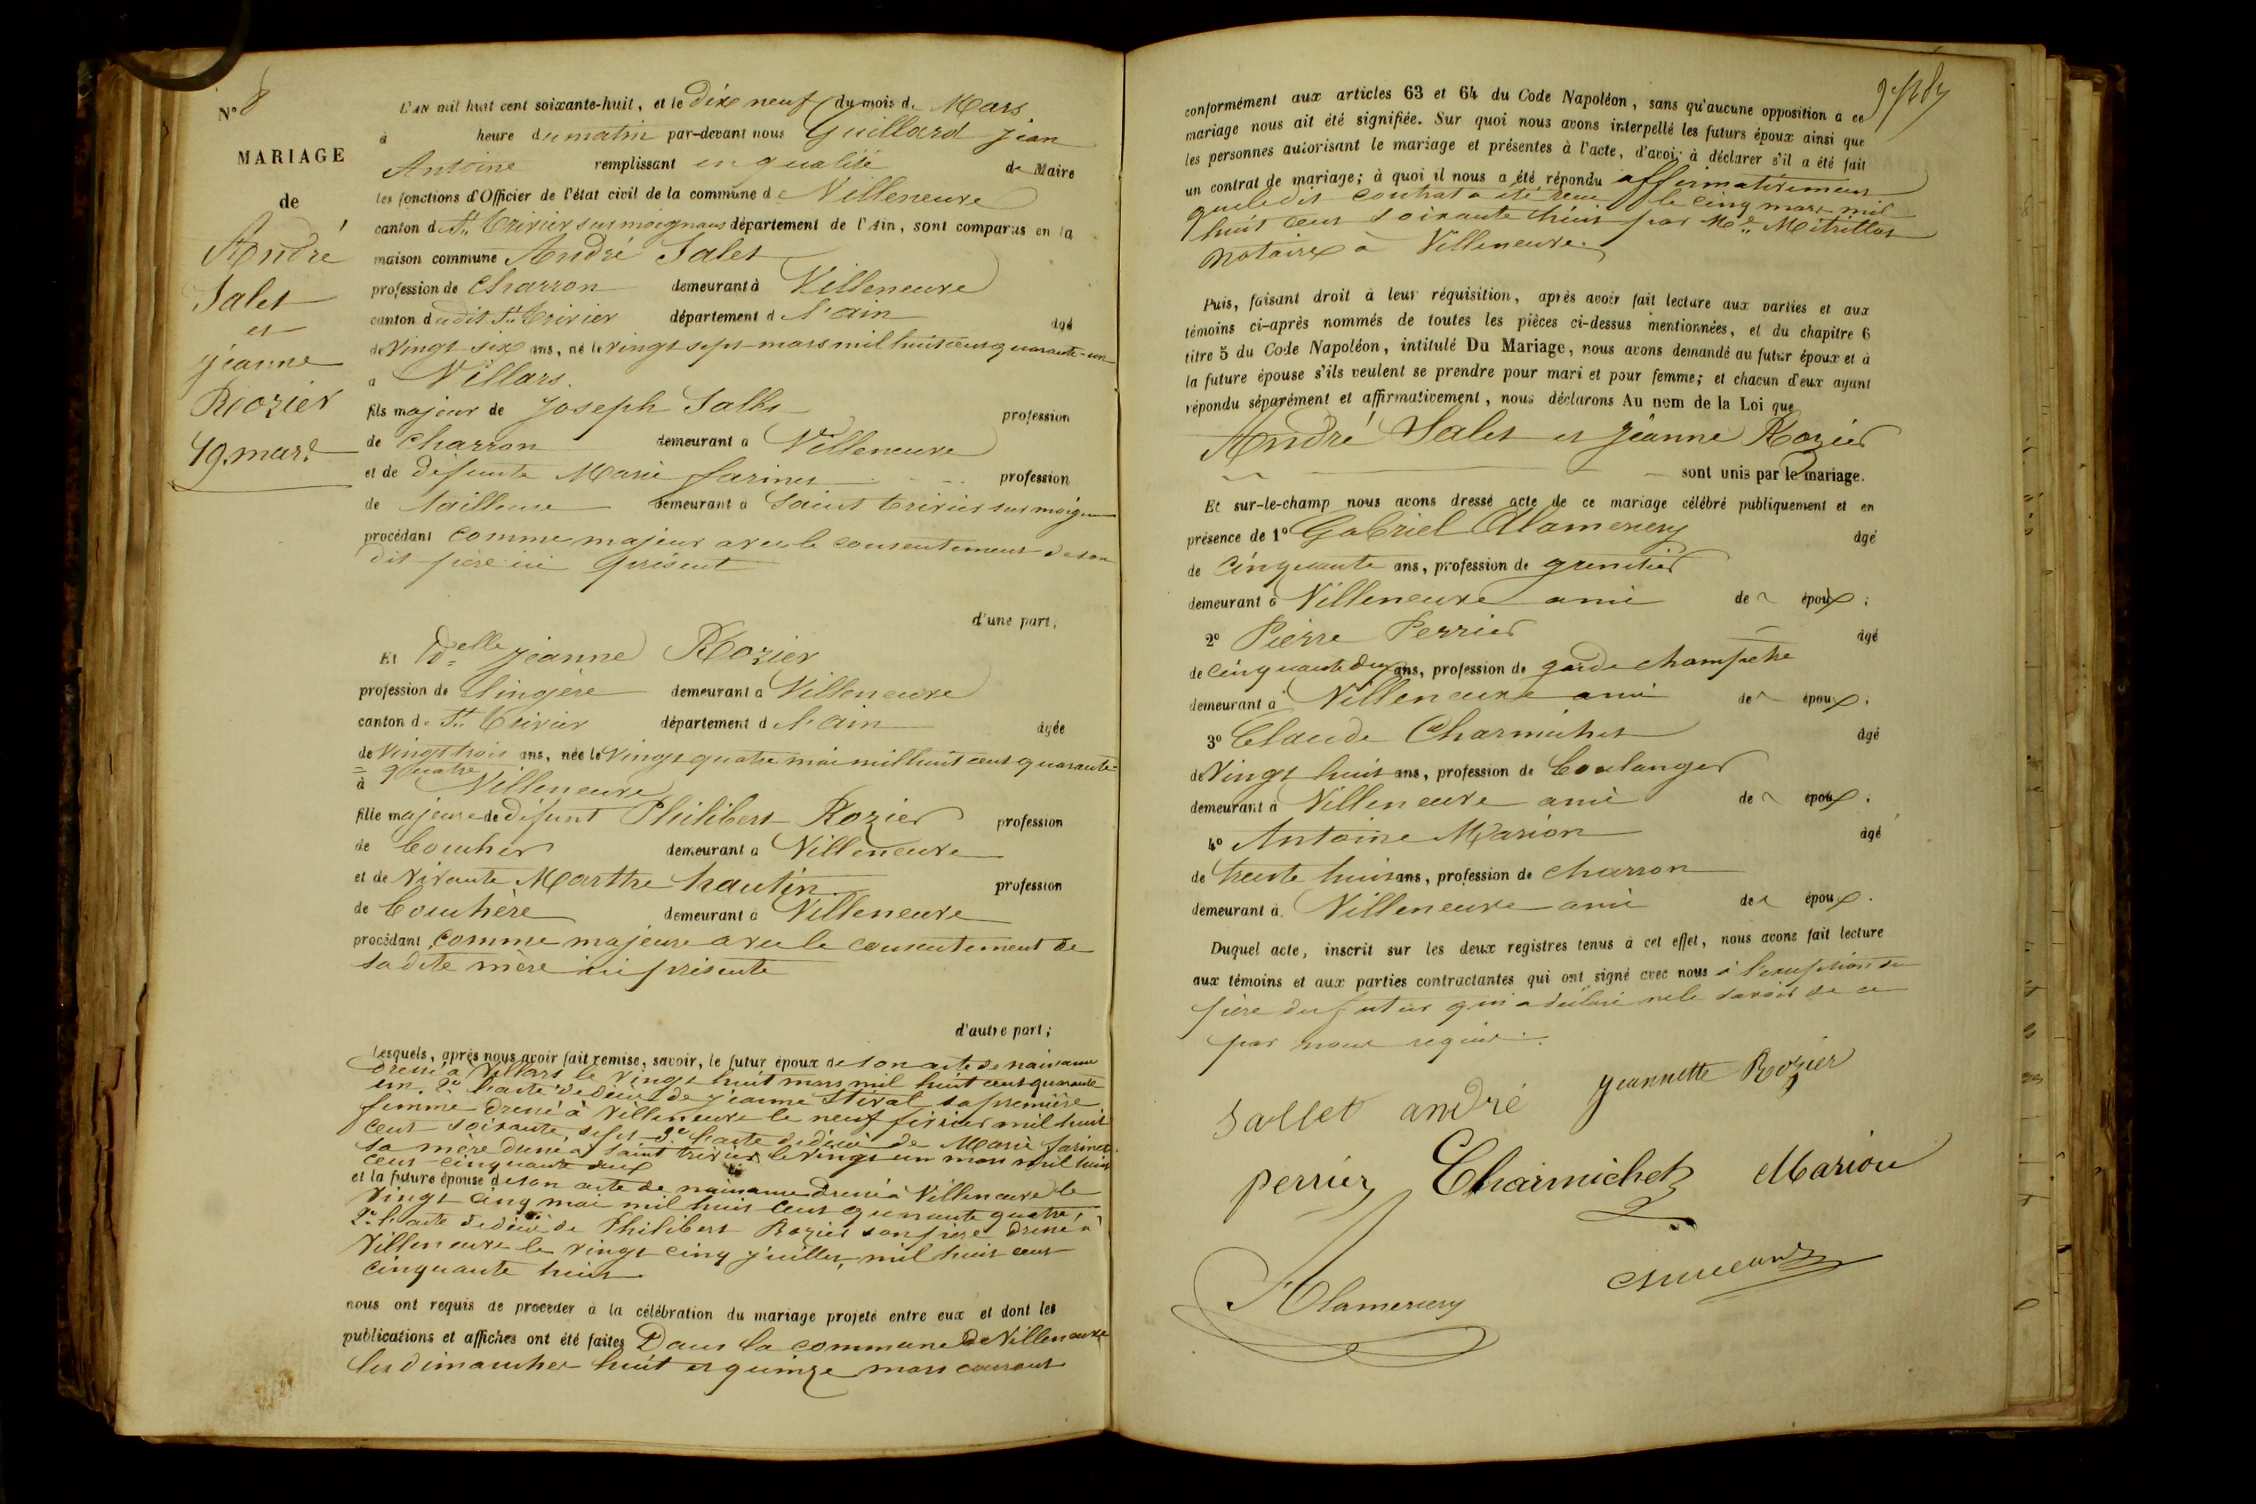 N° 8
MARIAGE
de
André
Salet
et
Jeanne
Rozier
19 mars
L'AN mil huit cent soixante-huit, et le dix neuf du mois de Mars
à heure du matin par-devant nous Guillard Jean
Antoine remplissant en qualité de Maire
les fonctions d'Officier de l'état civil de la commune de Villeneuve
canton de St. Trivier sur moignans département de l'Ain, sont comparus en la
maison commune André Salet
profession de Charron demeurant à Villeneuve
canton dudit St. Trivier département de l'ain âgé
de Vingt six ans, né le vingt sept mars mil huit cent quarante-un
à Villars.
fils majeur de Joseph Sallet profession
de Charron demeurant à Villeneuve
et de défunte Marie farinet profession
de tailleuse demeurant à Saint trivier sur moign
procédant comme majeur avec le consentement de son
dit père ici présent
d'une part,
Et Delle Jeanne Rozier
profession de lingère demeurant à Villeneuve
canton de St. Trivier département de l'ain âgée
de Vingt trois ans, née le vingt quatre mai mil huit cent quarante=
= quatre
à Villeneuve
fille majeure de défunt Philibert Rozier profession
de boucher demeurant à Villeneuve
et de vivante Marthe hautin profession
de bouchère demeurant à Villeneuve
procédant comme majeure avec le consentement de
sa dite mère ici présente
d'autre part;
Lesquels, après nous avoir fait remise, savoir, le futur époux de son acte de naissance
dressé à Villars le vingt huit mars mil huit cent quarante
un 2° l'acte de décès de Jeanne sa première
femme dressé à Villeneuve le neuf février mil huit
cent soixante, sept 3° l'acte de décès de Marie farinet
sa mère dressé à Saint trivier le vingt un mars mil huit
cent cinquante deux
et la future épouse de son acte de naissance dressé à Villeneuve le
vingt cinq mai mil huit cent quarante quatre,
2° l'acte de décès de Philibert Rozier son père dressé à
Villeneuve le vingt cinq juillet, mil huit cent
cinquante huit
nous ont requis de procéder à la célébration du mariage projeté entre eux et dont les
publications et affiches ont été faites Dans la commune de Villeneuve
les dimanches huit et quinze mars courant
conformément aux articles 63 et 64 du Code Napoléon, sans qu'aucune opposition à ce
mariage nous ait été signifiée. Sur quoi nous avons interpellé les futurs époux ainsi que
les personnes autorisant le mariage et présentes à l'acte, d'avoir à déclarer s'il a été fait
un contrat de mariage; à quoi il nous a été répondu affirmativement
que ledit contrat a été reçu le cinq mars mil
huit cent soixante huit par Me Mitrillot
notaire à Villeneuve.
Puis, faisant droit à leur réquisition, après avoir fait lecture aux parties et aux
témoins ci-après nommés de toutes les pièces ci-dessus mentionnées, et du chapitre 6
titre 5 du Code Napoléon, intitulé Du Mariage, nous avons demandé au futur époux et à
la future épouse s'ils veulent se prendre pour mari et pour femme; et chacun d'eux ayant
répondu séparément et affirmativement, nous déclarons Au nom de la Loi que
André Salet et Jeanne Rozier
sont unis par le mariage.
Et sur-le-champ nous avons dressé acte de ce mariage célébré publiquement et en
présence de 1° Gabriel Alamercery âgé
de Cinquante ans, profession de grenetier
demeurant à Villeneuve ami de époux;
2° Pierre Perrier âgé
de cinquante deux ans, profession de garde champetre
demeurant à Villeneuve ami de époux;
3° Claude Charmichet âgé
de Vingt huit ans, profession de boulanger
demeurant à Villeneuve ami de époux;
4° Antoine Marion âgé
de trente huit ans, profession de charron
demeurant à Villeneuve ami de époux.
Duquel acte, inscrit sur les deux registres tenus à cet effet, nous avons fait lecture
aux témoins et aux parties contractantes qui ont signé avec nous à l'exception du
père du futur qui a déclaré ne le savoir de ce
par nous requis.
Sallet andré Jeannette Rozier
perrier Charmichet Marion
Alamercery